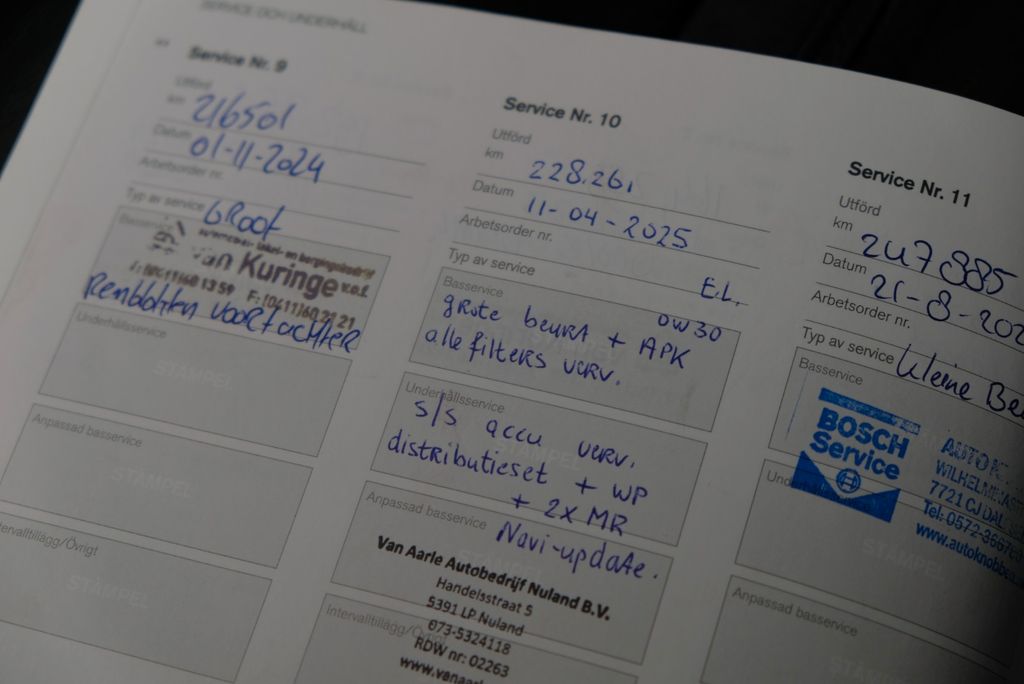 SERVICE OCH UNDERHÅLL
Service Nr. 9
Utförd
km 216501
Datum 01-11-2024
Arbetsorder nr.
Typ av service GROOT
Van Kuringe v.o.f.
F: (0411)60 21 21
Remblokken VOOR + ACHTER
Underhållsservice
STÄMPEL
Anpassad basservice
STÄMPEL
STÄMPEL
Service Nr. 10
Utförd
km 228.261
Datum 11-04-2025
Arbetsorder nr.
Typ av service E.L.
Basservice 0W30
grote beurt + APK
alle filters verv.
Underhållsservice
s/s accu verv.
distributieset + WP
+ 2x MR
Anpassad basservice Navi-update.
Van Aarle Autobedrijf Nuland B.V.
Handelsstraat 5
5391 LP Nuland
073-5324118
RDW nr: 02263
Intervalltillägg/Övrigt
Service Nr. 11
Utförd
km 247885
Datum 21-8-
Arbetsorder nr.
Typ av service Kleine
Basservice
BOSCH
Service
7721 CJ
STÄMPEL
Anpassad basservice
STÄMPEL